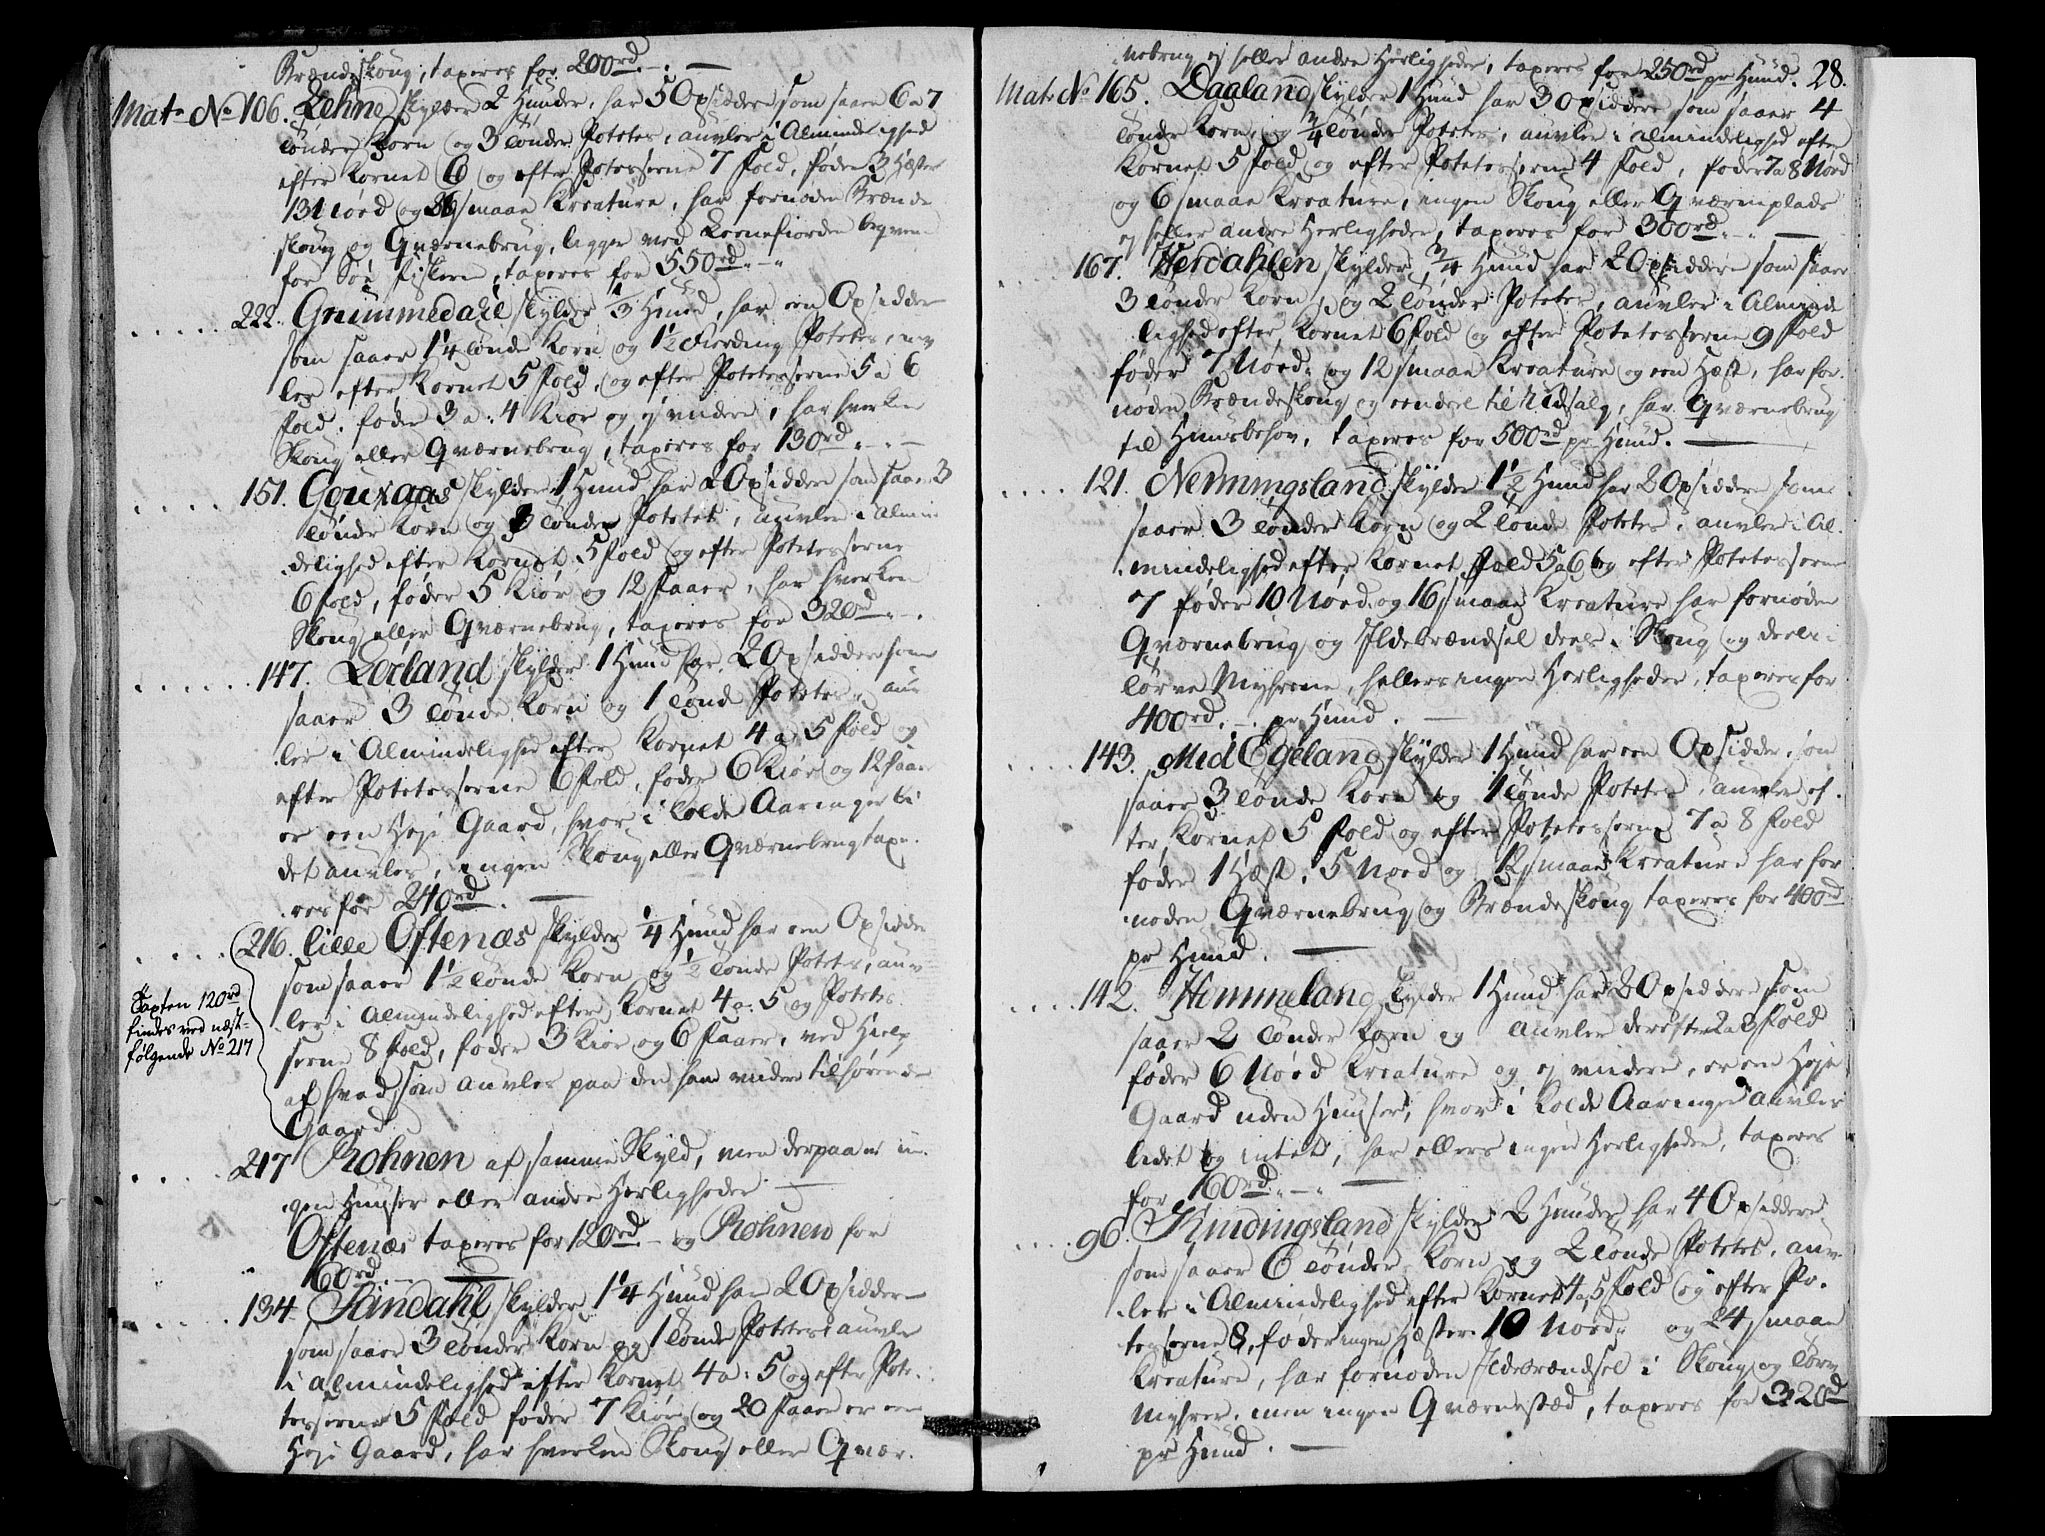 Brændeskoug, taxeres for 200rd. —
Mat. No 106. Lehne skylder 2 Huuder, har 5 Opsiddere som saaer 6 a 7
tønder Korn og 3 tønder Potetes, auvler i Almindelighed
efter Kornet 6 og efter Potetesserne 7 fold, føder 3 Hæster
13 Nød og 26 smaae Kreature, har fornøden Brænde
skoug og Qværnebrug, ligger ved Lenefiorden beqvem
for Søe Fiskerie, taxeres for 550rd. —
222. Grummedahl skylder 1/3 Huud, har een Opsidder
som saaer 1 1/4 tønde Korn og 1 1/2 Fierding Potetes, auv
ler efter Kornet 5 fold, og efter Potetesserne 5 a 6
fold, føder 3 a: 4 Kiør og ej videre, har hverken
Skoug eller Qværnebrug, taxeres for 130rd. —
151. Gouxaas skylder 1 Huud har 2 Opsiddere som saaer 3
tønder Korn og 3 tønder Potetes, auvler i Almin
delighed efter Kornet 5 fold og efter Potetesserne
6 fold, føder 5 Kiør og 12 Faaer, har hverken
Skoug eller Qværnebrug, taxeres for 320rd. —
147. Lerland skylder 1 Huud har 2 Opsiddere som
saaer 3 tønder Korn og 1 tønde Potetes, auv
ler i Almindelighed efter Kornet 4 a 5 fold og
efter Potetesserne 6 fold, føder 6 Kiør og 12 Faaer
er een Høj Gaard, hvor i kolde Aaringer li
det auvles, ingen Skoug eller Qværnebrug taxe-
res for 240rd. —
216. Lille Oftenæs skylder 1/4 Huud har een Opsidder
som saaer 1 1/2 tønde Korn og 1/2 tønde Potetes, auv
ler i Almindelighed efter Kornet 4 a: 5 og Potetes
serne 8 fold, føder 3 Kiør og 6 Faaer, ved Hielp
af hvad som auvles paa den ham videre tilhørende
Gaard
Taxten 120rd
findes ved næst-
følgende No 217
217 Rohnen af samme Skyld, men derpaa er in-
gen Huuser eller andre Herligheder —
Oftenæs taxeres for 120rd. — og Rohnen for
160rd. —
134. Sandahl skylder 1 1/4 Huud har 2 Opsiddere
som saaer 3 tønder Korn og 1 tønde Potetes auvler
i Almindelighed efter Kornet 4 a: 5 og efter Pote-
tesserne 5 fold føder 7 Kiør og 20 Faaer er een
Høj Gaard, har hverken Skoug eller Qvær-
nebrug ej heller andre Herligheder, taxeres for 250rd pr Huud. 28.
Mat. No 165. Dagland skylder 1 Huud har 3 Opsiddere som saaer 4
tønder Korn, og 3/4 tønder Potetes, auvler i Almindelighed efter
Kornet 5 fold og efter Potetesserne 4 fold, føder 7 a 8 Nød
og 6 smaae Kreature, ingen Skoug eller Qværneplads
ej heller andre Herligheder, taxeres for 300rd. —
167. Herdahlen skylder 3/4 Huud har 2 Opsiddere som saaer
3 tønder Korn, og 2 tønder Potetes, auvler i Alminde
lighed efter Kornet 6 fold og efter Potetesserne 9 fold
føder 7 Nød og 12 smaae Kreature og een Hæst, har for-
nøden Brændeskoug og eendeel til Udsalg, har Qværnebrug
til Huusbehov, taxeres for 500rd pr Huud. —
121. Nemmingsland skylder 1 1/2 Huud har 2 Opsiddere som
saaer 3 tønder Korn og 2 tønde Potetes, auvler i Al-
mindelighed efter Kornet fold 5 a 6 og efter Potetesserne
7 føder 10 Nød og 16 smaae Kreature har fornøden
Qværnebrug og Ildebrændsel deels i Skoug og deels i
Tørve Myhrene, hellers ingen Herligheder, taxeres for
400rd. — pr Huud. —
143. Mid Egeland skylder 1 Huud har een Opsidder, som
saaer 3 tønde Korn og 1 tønde Potetes, auvler ef-
ter Kornet 5 fold og efter Potetesserne 7 a 8 fold
føder 1 Hæst, 5 Nød og 12 smaae Kreature har for
nøden Qværnebrug og Brændeskoug taxeres for 400rd
pr Huud. —
142. Himmeland skylder 1 Huud har 2 Opsiddere som
saaer 2 tønder Korn og auvler derefter 2 a 3 fold
føder 6 Nød Kreature og ej videre, er een Høje
Gaard uden Huuser, hvor i kolde Aaringer auvles
lidet og intet, har ellers ingen Herligheder, taxeres
for 160rd. —
96. Kindingsland skylder 2 Huuder har 4 Opsiddere
som saaer 6 tønder Korn og 2 tønde Potetes, auv-
ler i Almindelighed efter Kornet 4 a 5 fold og efter Po-
tesserne 8, føder ingen Hæster 10 Nød og 24 smaae
Kreature, har fornøden Ildebrændsel i Skoug og Tørv
Myhrer, men ingen Qværnestæd, taxeres for 320rd
pr Huud. —